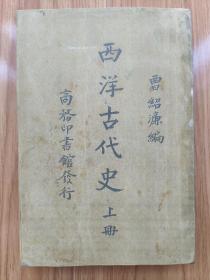 曹紹濂編
西洋古代史 上冊
商務印書館發行